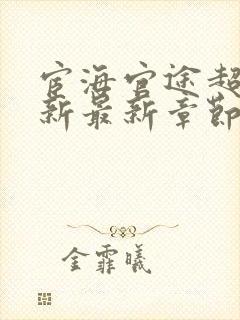 宦海官途超
新最新章节
金霏曦